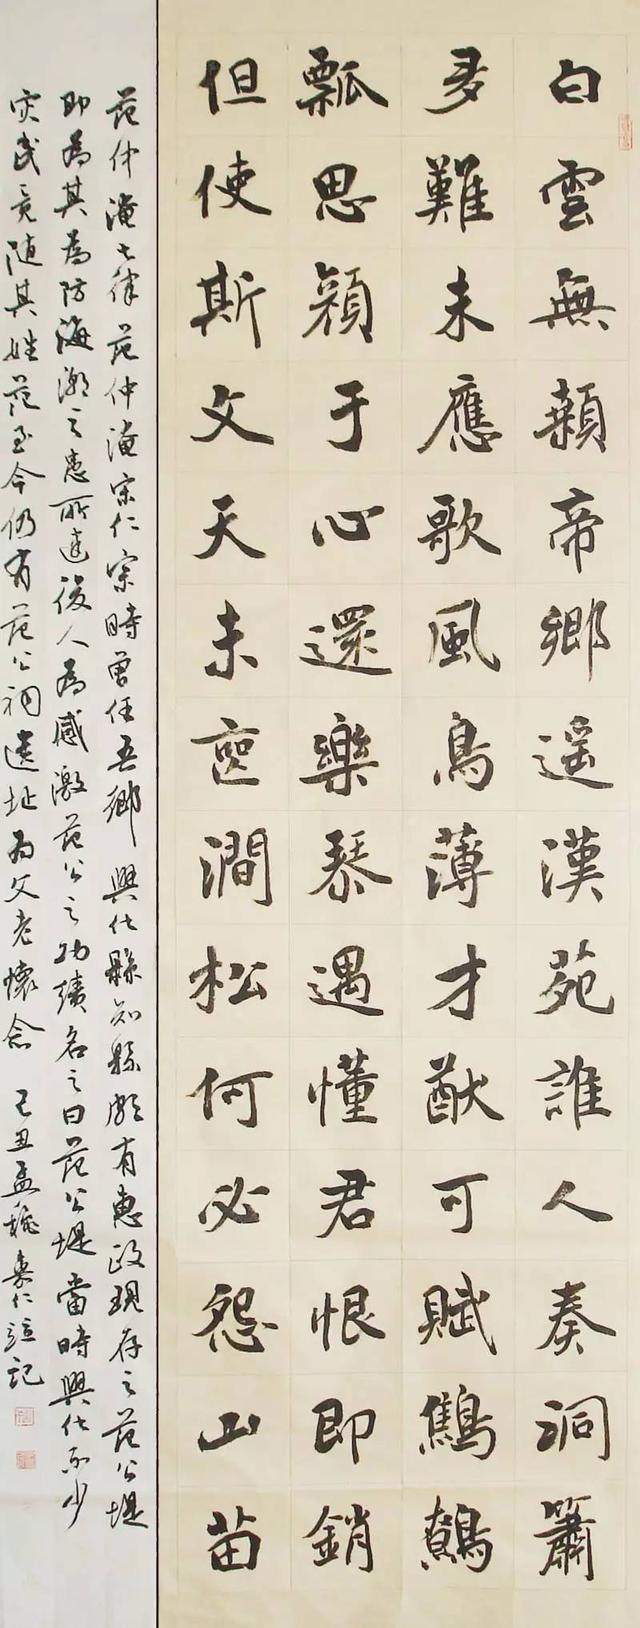 白雲無賴帝鄉遥漢苑誰人奏洞簫
多難未應歌風鳥薄才猷可賦鷦鷯
瓢思顔于心還樂琴遇懂君恨即銷
但使斯文天未喪澗松何必怨山苗
范仲淹七律 范仲淹宋仁宗時曾任吾鄉 興化縣知縣頗有惠政現存之范公堤
即為其為防海潮之患所建後人為感激范公之功績名之曰范公堤當時興化不少
灾民竟随其姓范至今仍有范公祠遺址为父老懷念 己丑孟穐 仁 記